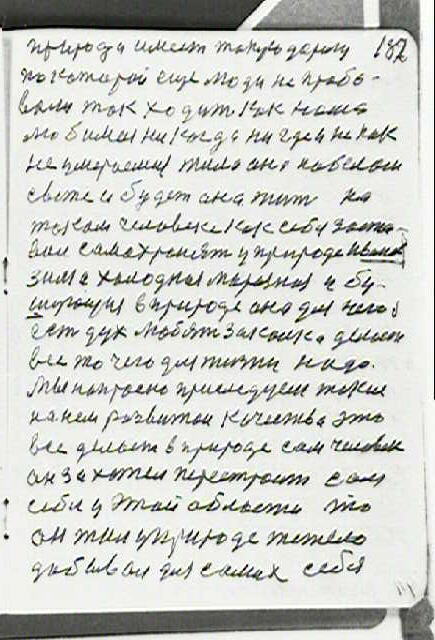 природа имеет такую дорогу 182
по которой еще люди не пробо-
вали так ходит как наша
любимая никогда нигде и не как
не умераемая жила она на белом
свете и будет она жит на
таком человеке как себя заста-
вил самохранят у природе
зима холодная марозная и бу-
шующия в природе она для него
ест дух любят закалка делает
все то чего для жизни надо.
Мы напрасно приследуем такие
на нем развитаи качества это
все делает в природе сам человек
он захотел перестроит сам
себя у этой области что
он жил у природе тежело
добывал для самих себя